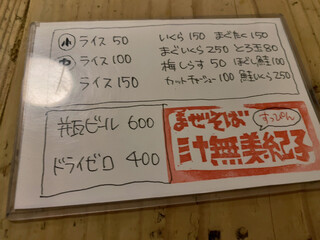 小 ライス 50
中 ライス 100
ライス 150
いくら 150 まぐたく 150
まぐいくら 250 とろ玉 80
梅しらす 50 ほぐし鮭 100
カットチャーシュー 100 鮭いくら 250
瓶ビール 600
ドライゼロ 400
まぜそば
すっぴん
汁無美紀子